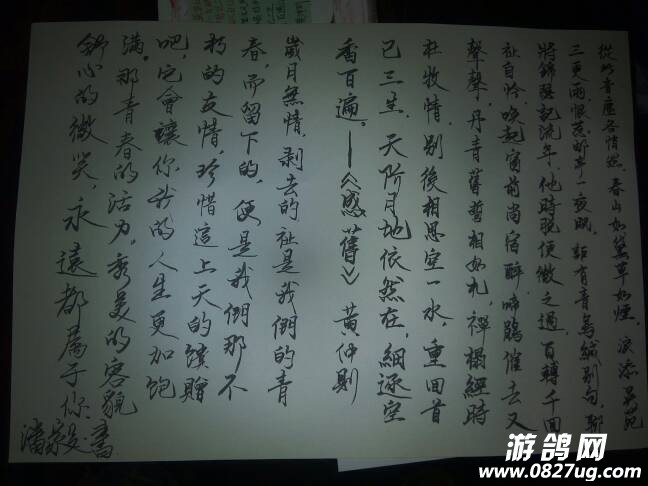 從此音塵各悄然，春山如黛草如煙。淚添吳苑
三更雨，恨惹郵亭一夜眠。詎有青鳥緘別句，聊
將錦瑟記流年。他時脫便微之過，百轉千回
祉自怜。喚起窗前尚宿醉，啼鵑催去又
聲聲。丹青舊誓相如札，禪榻經時
杜牧情。別後相思空一水，重回首
已三生。天階月地依然在，細逐空
香百遍。——《感舊》黃仲則
歲月無情，剥去的祉是我們的青
春，而留下的，便是我們那不
朽的友情，珍惜這上天的饋贈
吧，它會讓你我的人生更加飽
滿。那青春的活力，秀美的容貌
舒心的微笑，永遠都屬于你
游鸽网
www.0827ug.com